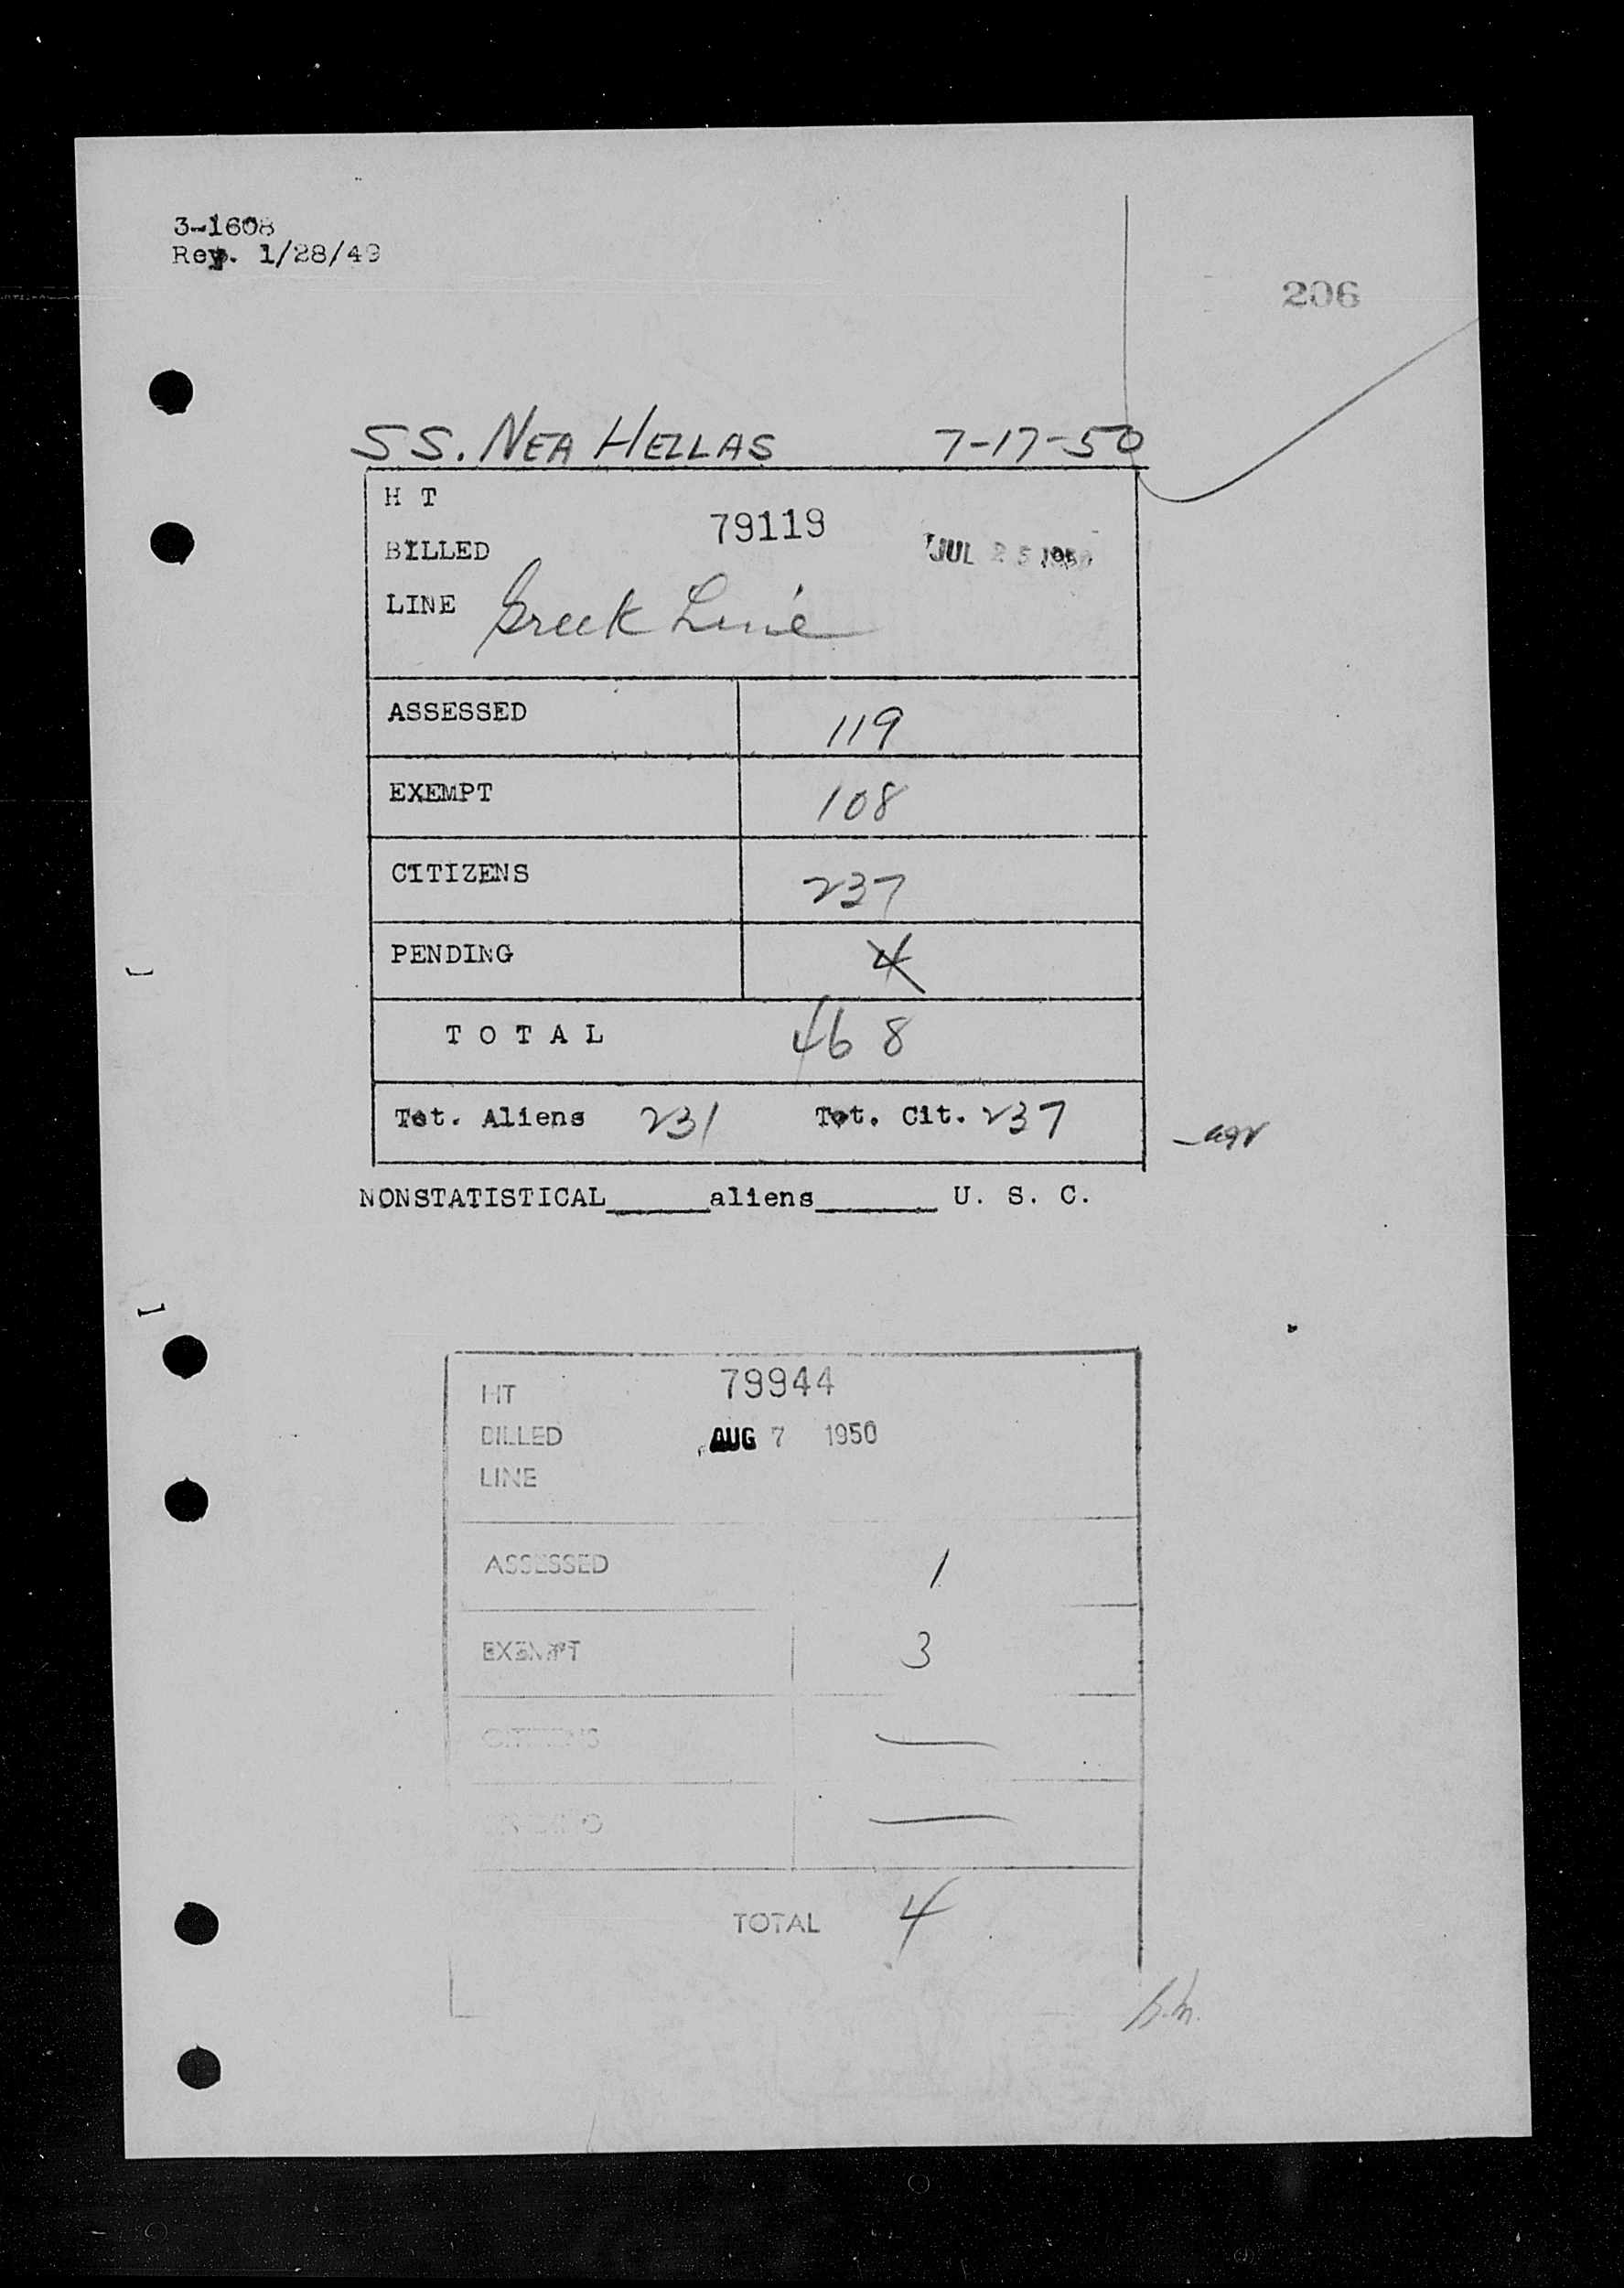 3-1608
Rev. 1/28/49
206
SS. NEA HELLAS 7-17-50
H T 79119
BILLED JUL 25 1950
LINE Greek Line
ASSESSED 119
EXEMPT 108
CITIZENS 237
PENDING 4
T O T A L 468
Tot. Aliens 231 Tot. Cit. 237
NONSTATISTICAL_____aliens______ U. S. C.
HT 79944
BILLED AUG 7 1950
LINE
ASSESSED 1
EXEMPT 3
CITIZENS —
PENDING —
TOTAL 4